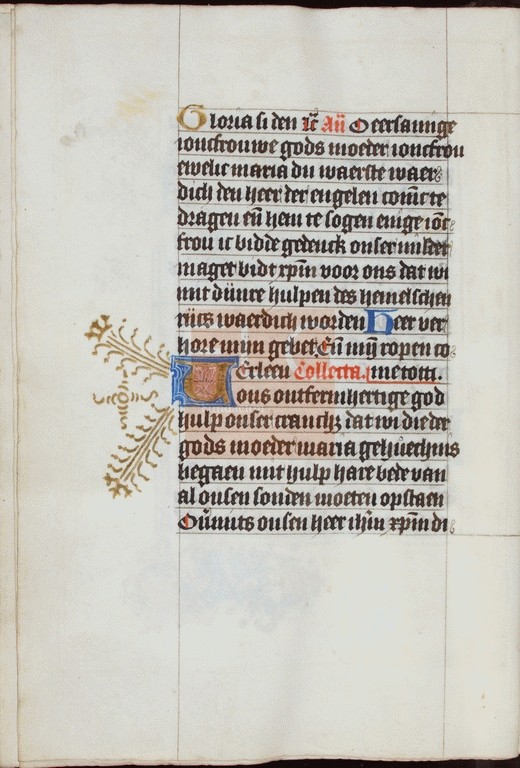 Gloria si den Añ O eersamige
ioncfrouwe gods moeder ioncfrou
ewelic maria du waerste waer
dich den heer der engelen te
dragen eñ hem te sogen enige
frou ic bidde gedenck onser
maget bidt xpm̄ voor ons dat wi
mit dijnre hulpen des hemelschen
rijcs waerdich worden Heer ver
hore mijn gebet Eñ mijn ropen co
Collecta
ons ontfermhertige god
hulp onser dat wi die der
gods moeder maria
begaen mit hulp hare bede van
al onsen sonden moeten opstaen
onsen heer ihm̄ xpm̄ di